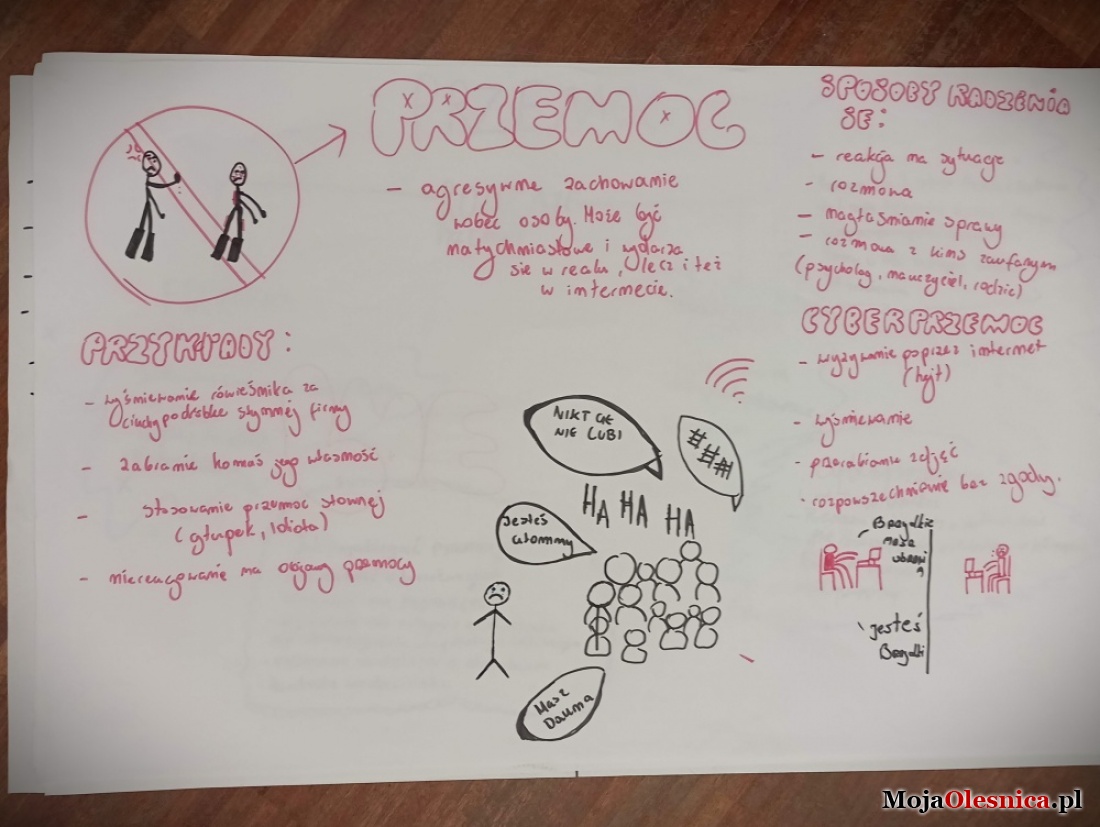 PRZEMOC
- agresywne zachowanie
wobec osoby. Może być
natychmiastowe i wydarza
się w realu, lecz i też
w internecie.
PRZYKŁADY:
- wyśmiewanie rówieśnika za
ciuchy podróbke słynnej firmy
- zabranie komuś jego własność
- stosowanie przemoc słownej
(głupek, Idiota)
- niereagowanie na objawy przemocy
SPOSOBY RADZENIA
SIE:
- reakcja na sytuacje
- rozmowa
- nagłaśnianie sprawy
- rozmowa z kimś zaufanym
(psycholog, nauczyciel, rodzic)
CYBERPRZEMOC
- wyzywanie poprzez internet
(hejt)
- wyśmiewanie
- przerabianie zdjęć
- rozpowszechnianie bez zgody.
NIKT CIE
NIE LUBI
###
HA HA HA
Jesteś
ułomny
Masz
Dauna
Brzydkie
Masz
ubrani
a
Jesteś
Brzydki
MojaOlesnica.pl